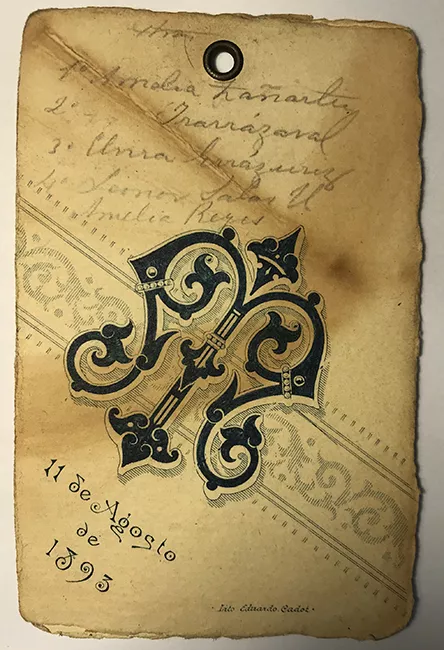 1ª Amelia Lañartu
2ª " Irarrázaval
3ª Elvira Errázuriz
4ª Leonor Salas U
Amelia Reyes
11 de Agosto
de
1893
Eduardo Cadot